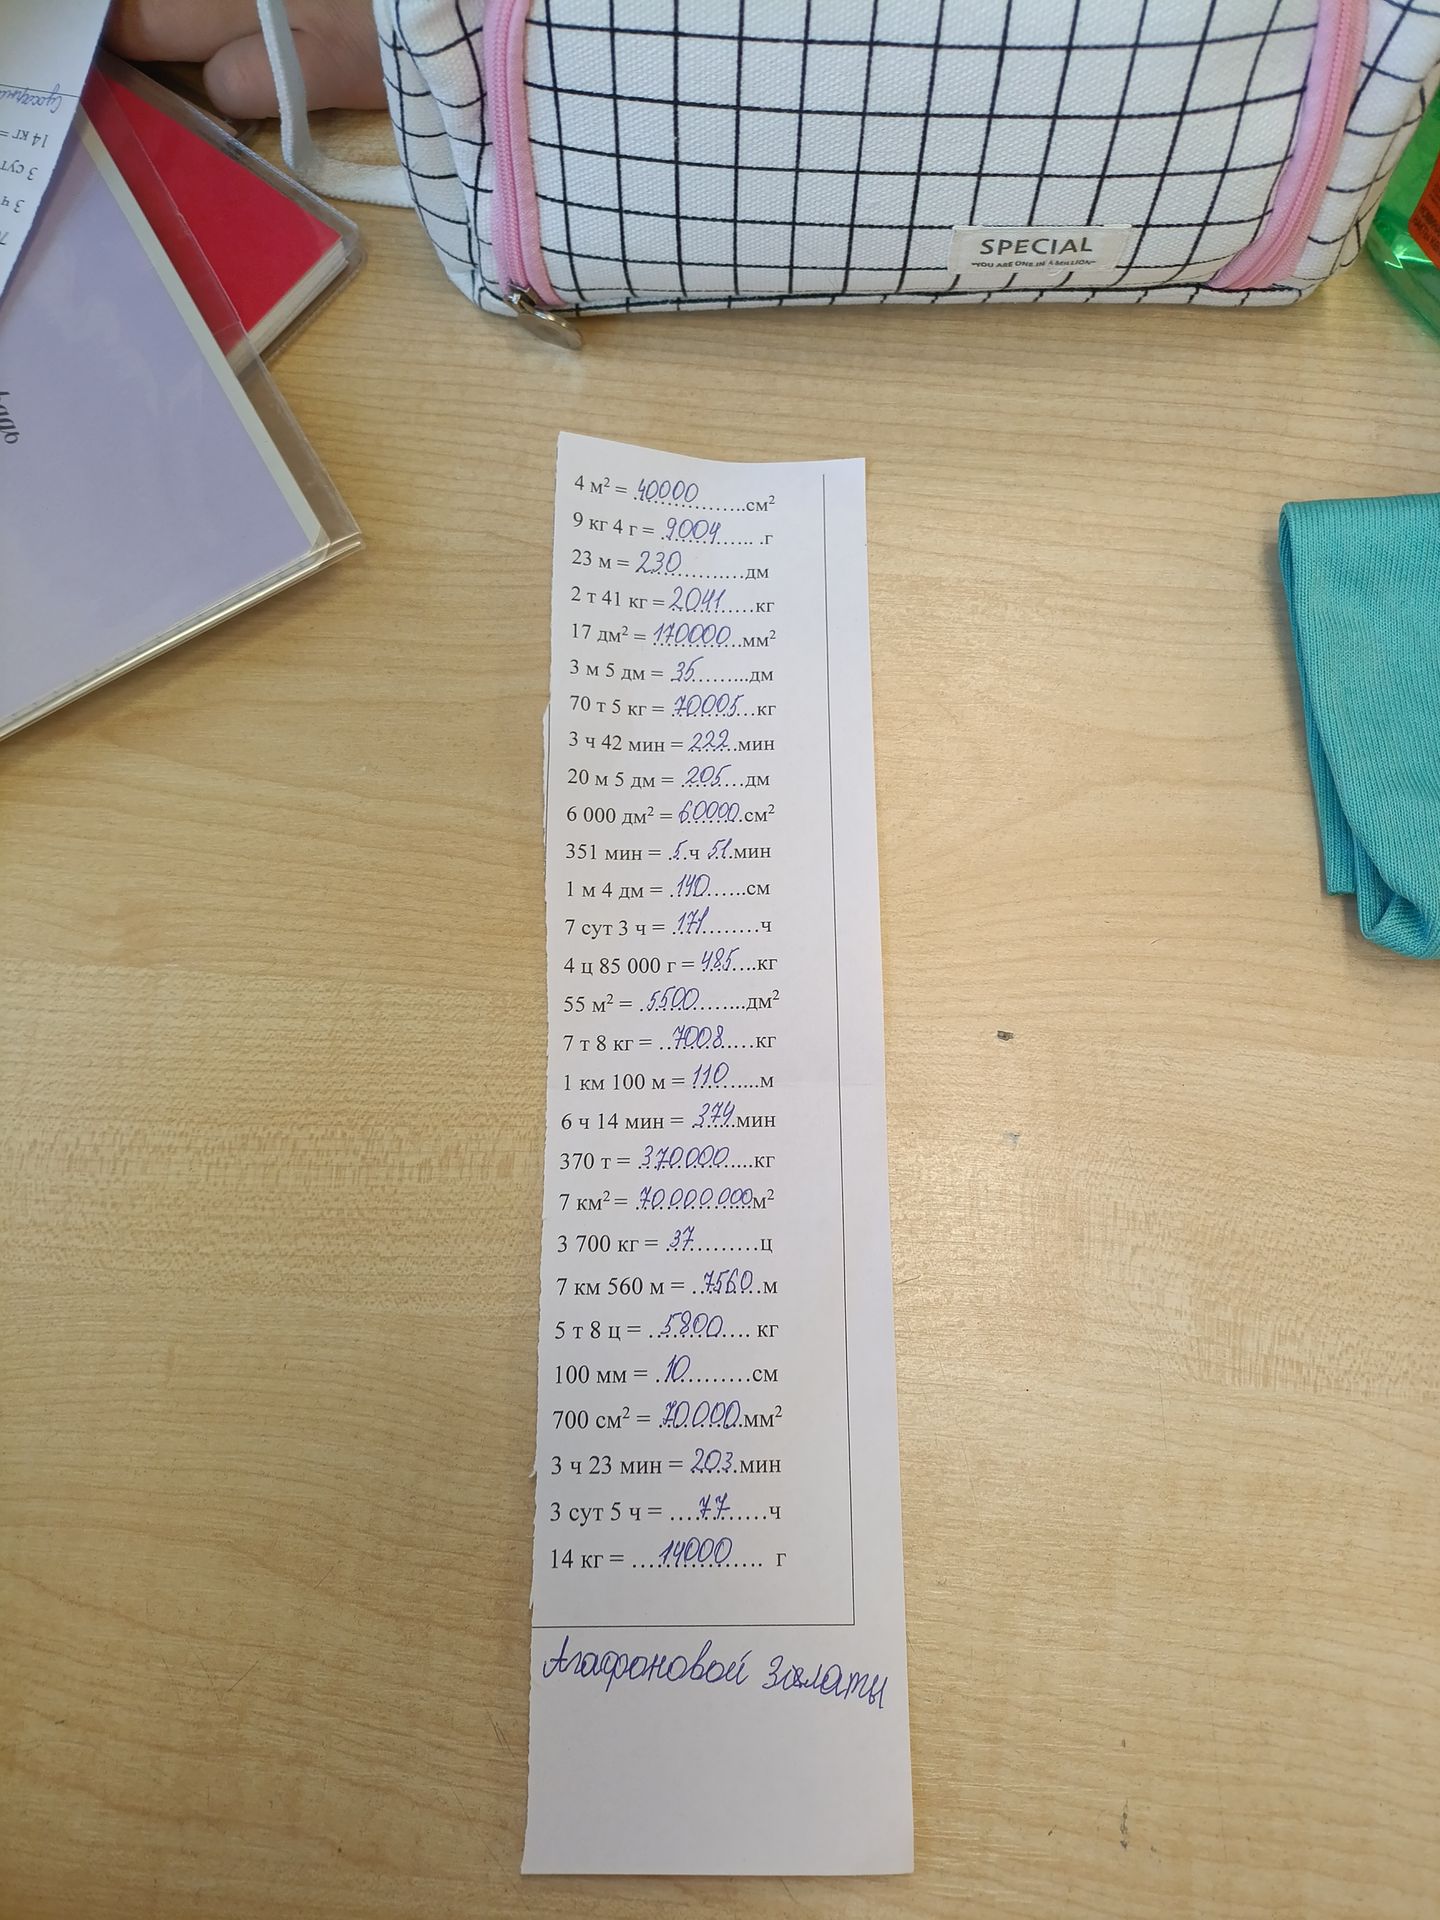 SPECIAL
"YOU ARE ONE IN A MILLION"
14 кг =
3 сут
3 ч
4 м² = 40000 см²
9 кг 4 г = 9004 г
23 м = 230 дм
2 т 41 кг = 2041 кг
17 дм² = 170000 мм²
3 м 5 дм = 35 дм
70 т 5 кг = 70005 кг
3 ч 42 мин = 222 мин
20 м 5 дм = 205 дм
6 000 дм² = 60000 см²
351 мин = 5 ч 51 мин
1 м 4 дм = 140 см
7 сут 3 ч = 171 ч
4 ц 85 000 г = 485 кг
55 м² = 5500 дм²
7 т 8 кг = 7008 кг
1 км 100 м = 110 м
6 ч 14 мин = 374 мин
370 т = 370000 кг
7 км² = 70000000 м²
3 700 кг = 37 ц
7 км 560 м = 7560 м
5 т 8 ц = 5800 кг
100 мм = 10 см
700 см² = 70000 мм²
3 ч 23 мин = 203 мин
3 сут 5 ч = 77 ч
14 кг = 14000 г
Агафоновой Златы